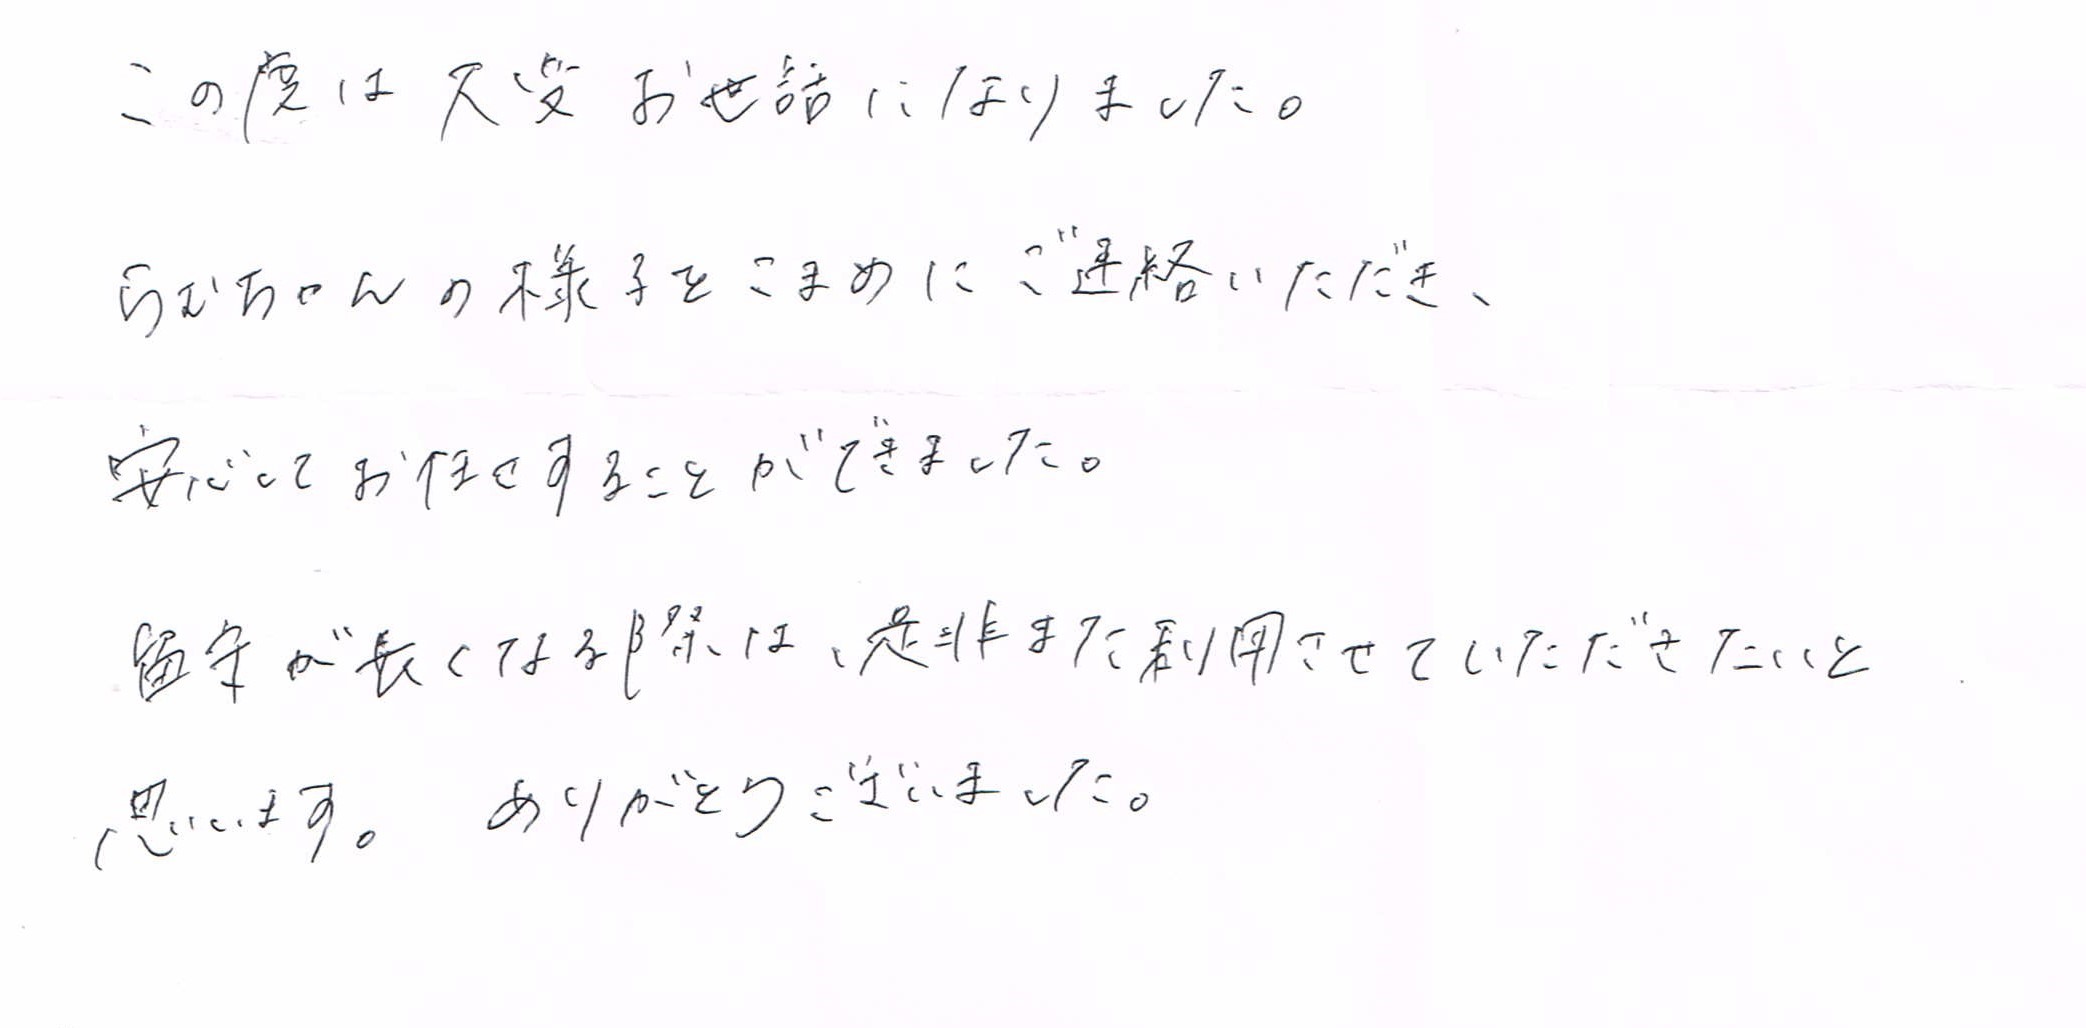 この度は大変お世話になりました。
らむちゃんの様子をこまめにご連絡いただき、
安心してお任せすることができました。
留守が長くなる際は、是非また利用させていただきたいと
思います。 ありがとうございました。